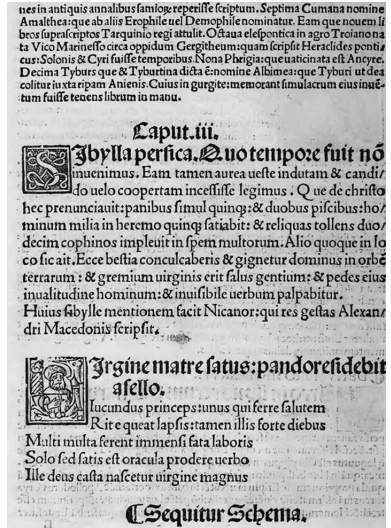 nes in antiquis annalibus famosę reperisse scriptum. Septima Cumana nomine
Amalthea: que ab aliis Erophile uel Demophile nominatur. Eam que nouem li
bros suprascriptos Tarquinio regi attulit. Octaua elespontica in agro Troiano na
ta Vico Marinesso circa oppidum Gergitheum: quam scripsit Heraclides ponti
cus: Solonis & Cyri fuisse temporibus. Nona Phrigia: que uaticinata est Ancyre.
Decima Tyburs que & Tyburtina dicta ē: nomine Albimea: que Tyburi ut dea
colitur iuxta ripam Anienis. Cuius in gurgite: memorant simulacrum eius inuē⸗
tum fuisse tenens librum in manu.
Caput. iii.
SIbylla persica. Quo tempore fuit nō
inuenimus. Eam tamen aurea ueste indutam & candi⸗
do uelo coopertam incessisse legimus. Que de christo
hec prenunciauit: panibus simul quinq; & duobus piscibus: ho⸗
minum milia in heremo quinq; satiabit: & reliquas tollens duo⸗
decim cophinos impleuit in spem multorum. Alio quoque in lo
co sic ait. Ecce bestia conculcaberis & gignetur dominus in orbē
terrarum: & gremium uirginis erit salus gentium: & pedes eius
inualitudine hominum: & inuisibile uerbum palpabitur.
Huius sibylle mentionem facit Nicanor: qui res gestas Alexan⸗
dri Macedonis scripsit.
VIrgine matre satus: pando residebit
asello.
Iucundus princeps: unus qui ferre salutem
Rite queat lapsis: tamen illis forte diebus
Multi multa ferent immensi fata laboris
Solo sed satis est oracula prodere uerbo
Ille deus casta nascetur uirgine magnus
⸿ Sequitur Schema.